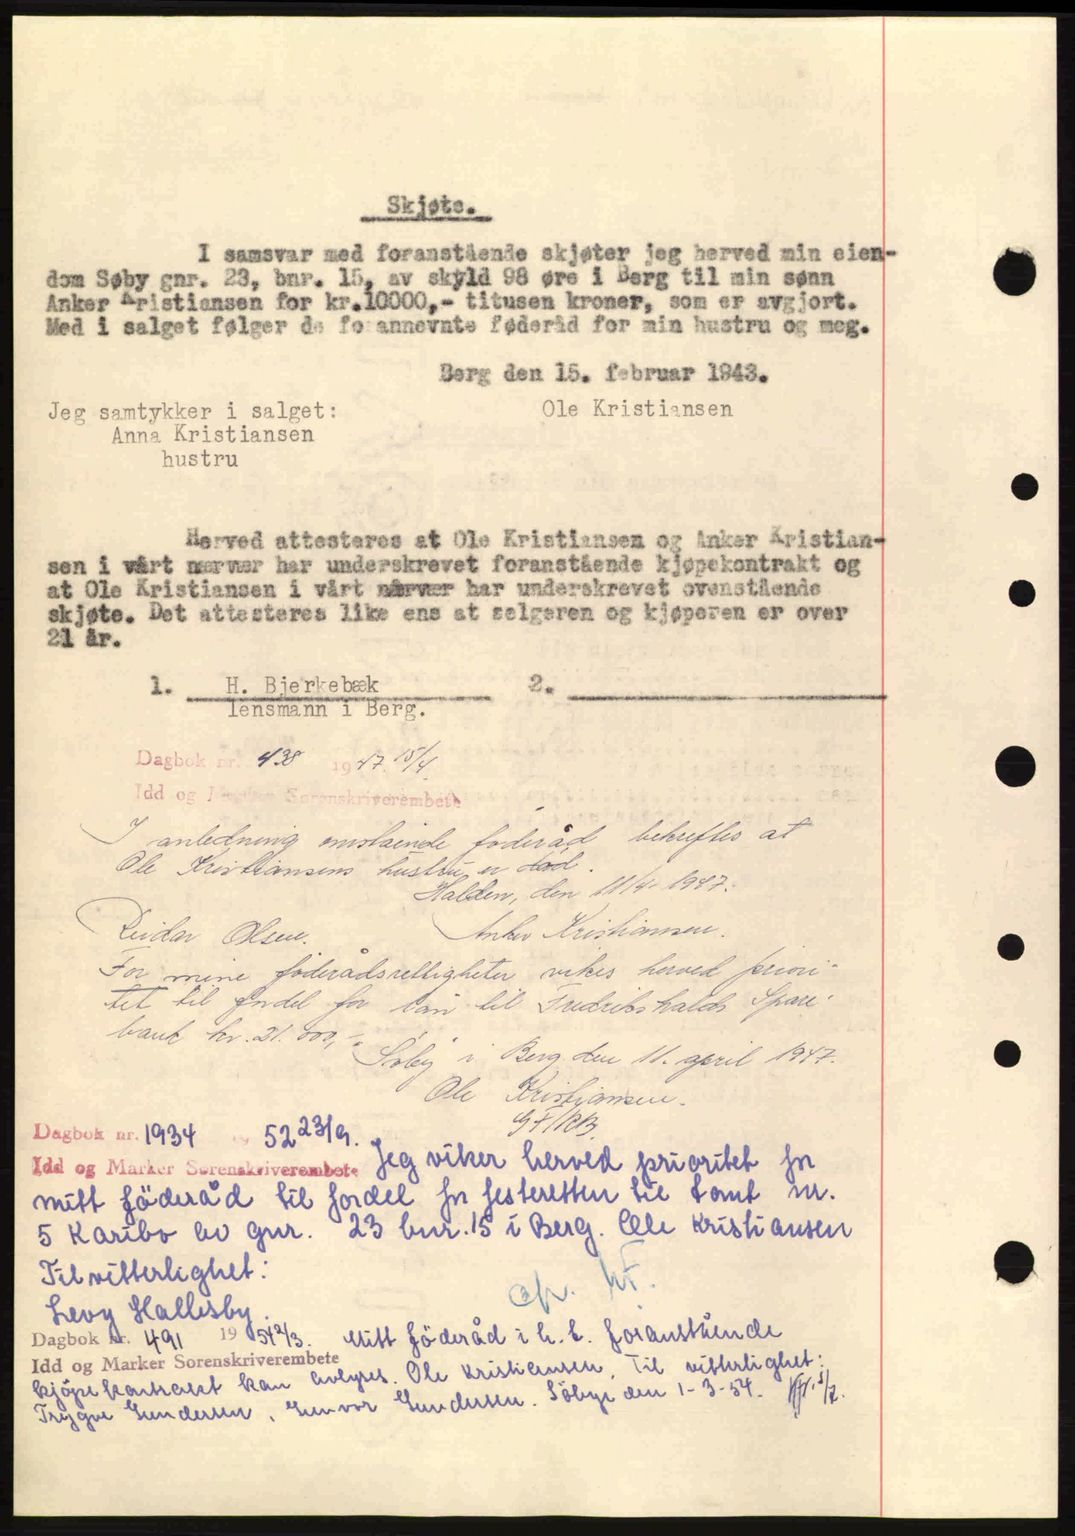 Skjøte.
I samsvar med foranstående skjøter jeg herved min eien-
dom Søby gnr. 23, bnr. 15, av skyld 98 øre i Berg til min sønn
Anker Kristiansen for kr.10000,- titusen kroner, som er avgjort.
Med i salget følger de forannevnte føderåd for min hustru og meg.
Berg den 15. februar 1943.
Jeg samtykker i salget:
Ole Kristiansen
Anna Kristiansen
hustru
Herved attesteres at Ole Kristiansen og Anker Kristian-
sen i vårt nærvær har underskrevet foranstående kjøpekontrakt og
at Ole Kristiansen i vårt nærvær har underskrevet ovenstående
skjøte. Det attesteres like ens at selgeren og kjøperen er over
21 år.
1. H. Bjerkebæk 2.
lensmann i Berg.
Dagbok nr. 938 1947 15/4.
Idd og Marker Sorenskriverembete
I anledning omstående føderåd bekreftes at
Ole Kristiansens hustru er død.
Halden, den 11/4-1947.
Reidar Olsen. Anker Kristiansen.
For mine føderådsrettigheter vikes herved priori-
tet til fordel for lån til Fredrikshalds Spare-
bank kr. 21.000,-
Søby i Berg den 11. april 1947.
Ole Kristiansen.
GF/RB.
Dagbok nr. 1934 19 52 23/9.
Idd og Marker Sorenskriverembete Jeg viker herved prioritet for
mitt föderåd til fordel for festeretten til tomt nr.
5 Karibo av gnr. 23 bnr. 15 i Berg. Ole Kristiansen
Til vitterlighet:
Levy Hallesby.
Dagbok nr. 491 19 54 2/3. Mitt föderåd i h.t. foranstående
Idd og Marker Sorenskriverembete
kjöpekontrakt kan avlyses. Ole Kristiansen. Til vitterlighet:
Trygve Gundersen, Gunvor Gundersen. Söbye den 1-3-54.